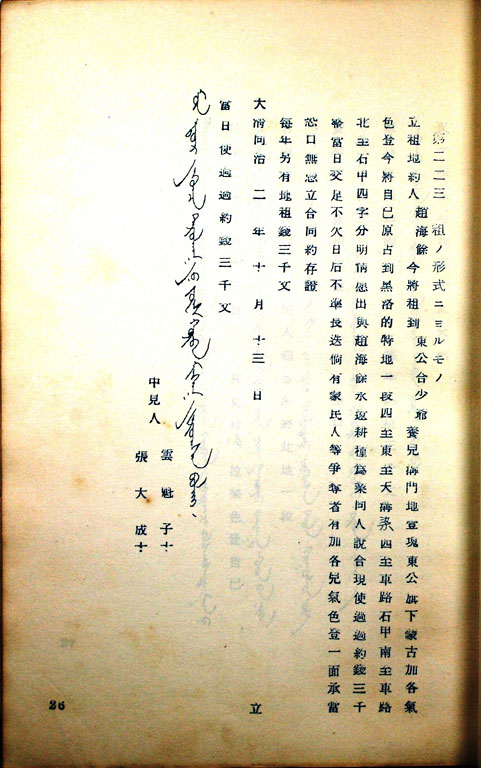 第二二三 租ノ形式ニヨルモノ
立租地約人 趙海餘 今將租到 東公合少爺 養兒溝門地壹塊東公旗下蒙古加各氣
色登今將自己原占到黑洛的特地一段四至東至天溝梁四至車路石甲南至車路
北至石甲四字分明情愿出與趙海餘永遠耕種爲業同人說合現使過過約錢三千
當日交足不欠日后不準長迭倘有蒙民人等爭奪者有加各兒氣色登一面承當
恐口無憑立合同約存證
每年另有地租錢三千文
大淸同治二年十月十三日 立
當日使過過約錢三千文
中見人 雲魁子十
張大成十
26